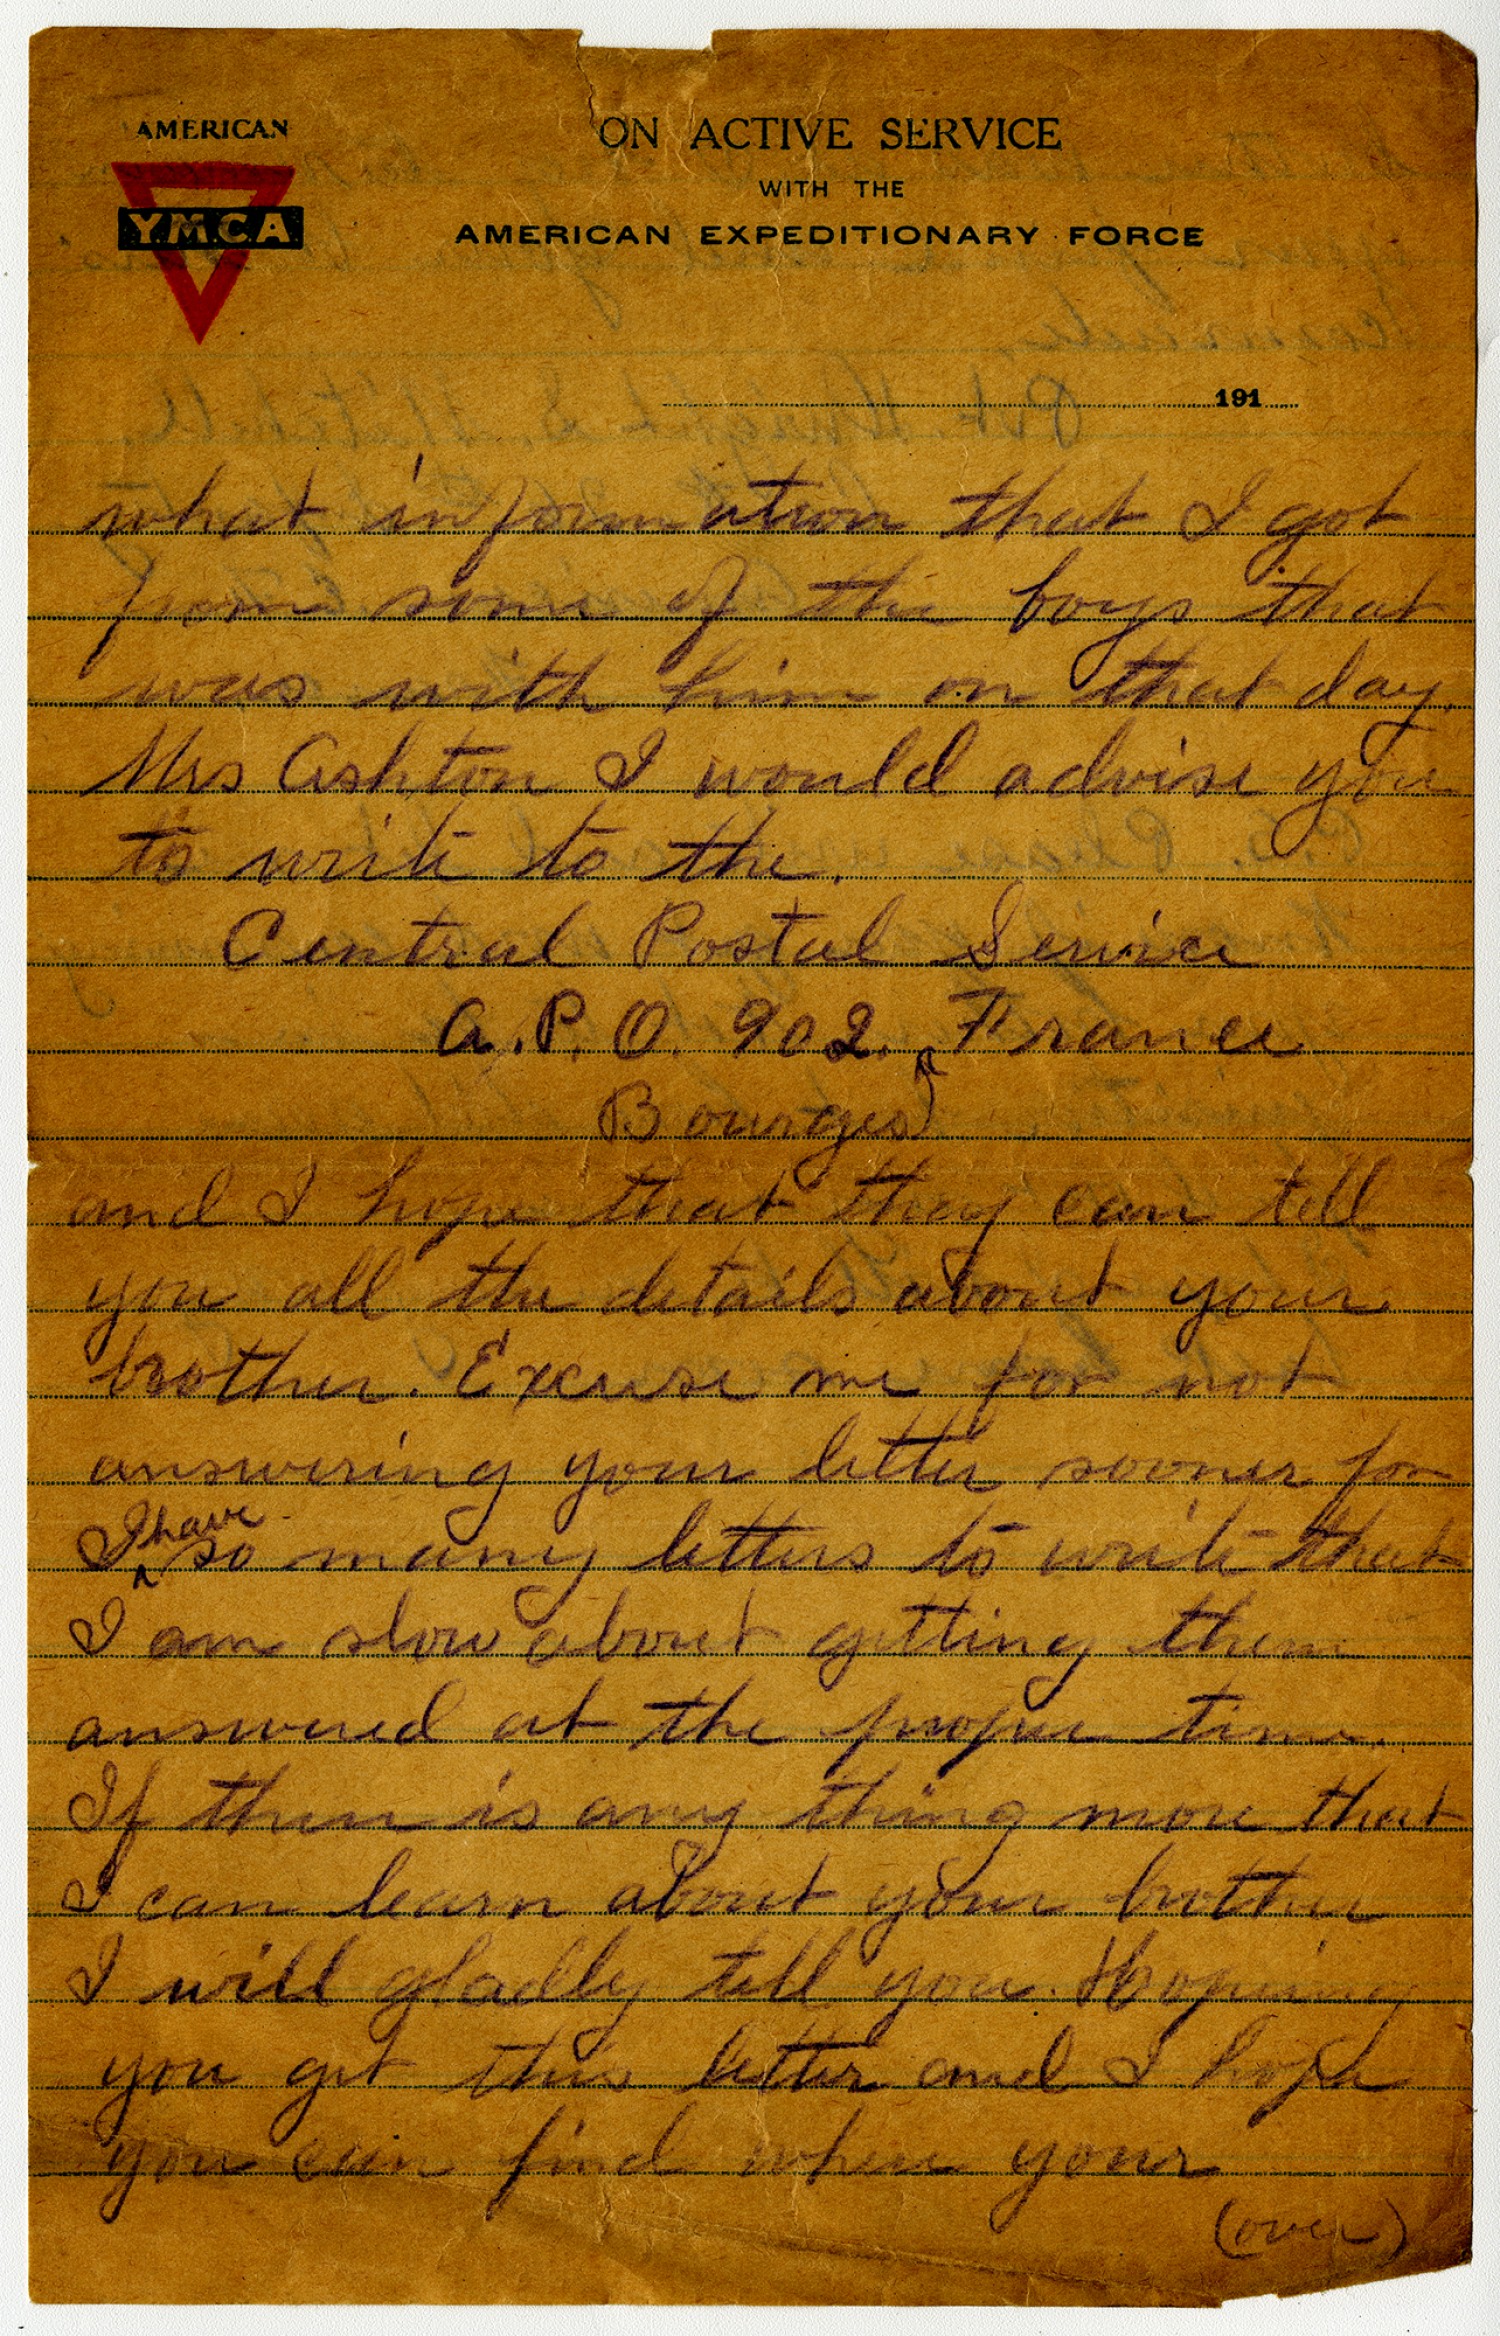 AMERICAN
YMCA
ON ACTIVE SERVICE
WITH THE
AMERICAN EXPEDITIONARY FORCE
191
what information that I got
from some of the boys that
was with him on that day.
Mrs Ashton I would advise you
to write to the.
Central Postal Service
A.P.O. 902. France
Bourges
and I hope that they can tell
you all the details about your
brother. Excuse me for not
answering your letter sooner for
I have so many letters to write that
I am slow about getting them
answered at the proper time.
If there is any thing more that
I can learn about your brother
I will gladly tell you. Hopeing
you get this letter and I hope
you can find where your
(over)